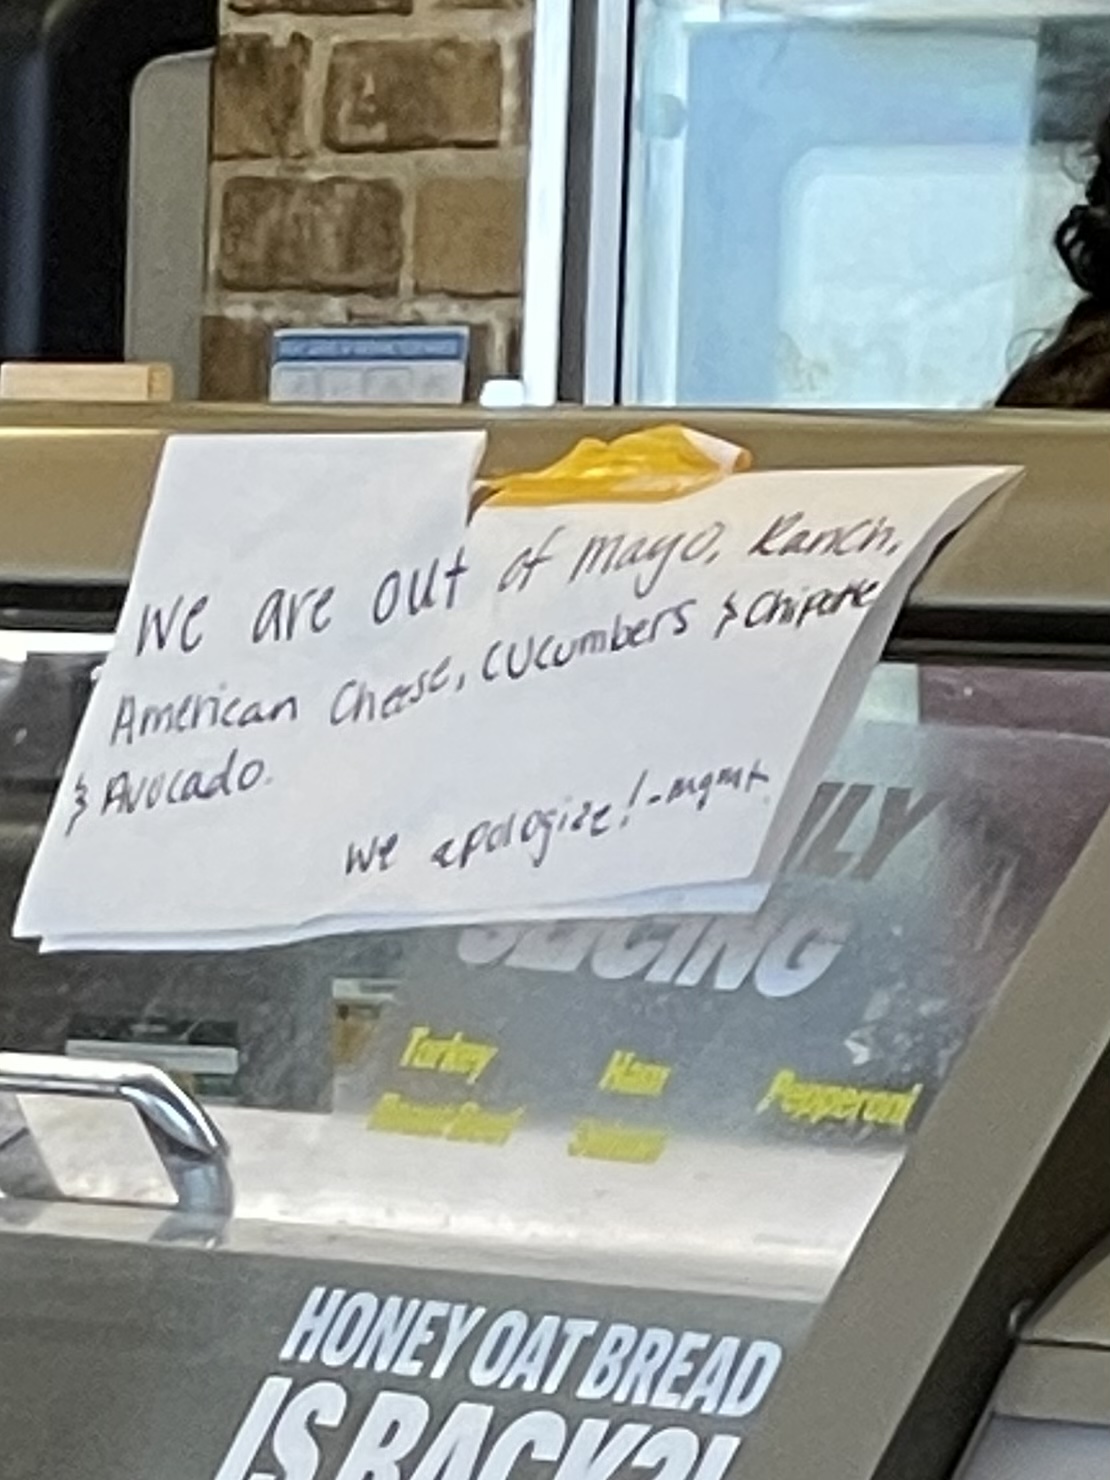 We are out of mayo, Ranch,
American Cheese, cucumbers & Chipotle
& Avocado.
We apologize! -mgmt.
ILY
SLICING
Turkey Ham Pepperoni
Roast Beef Salami
HONEY OAT BREAD
IS BACK?!